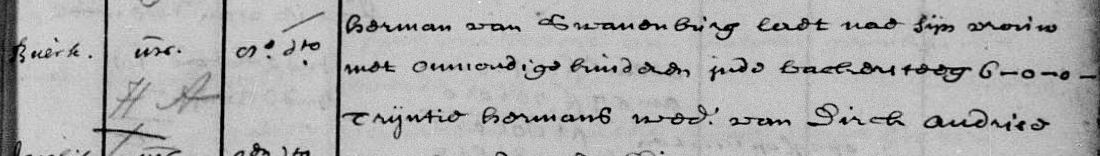 herman van Swanenburg laet nae sijn vrouw
Buerk. 
met onmondige kinderen inde backersteeg 6-0-0-
H A
Trijntie hermans wed. van Dirck Andries